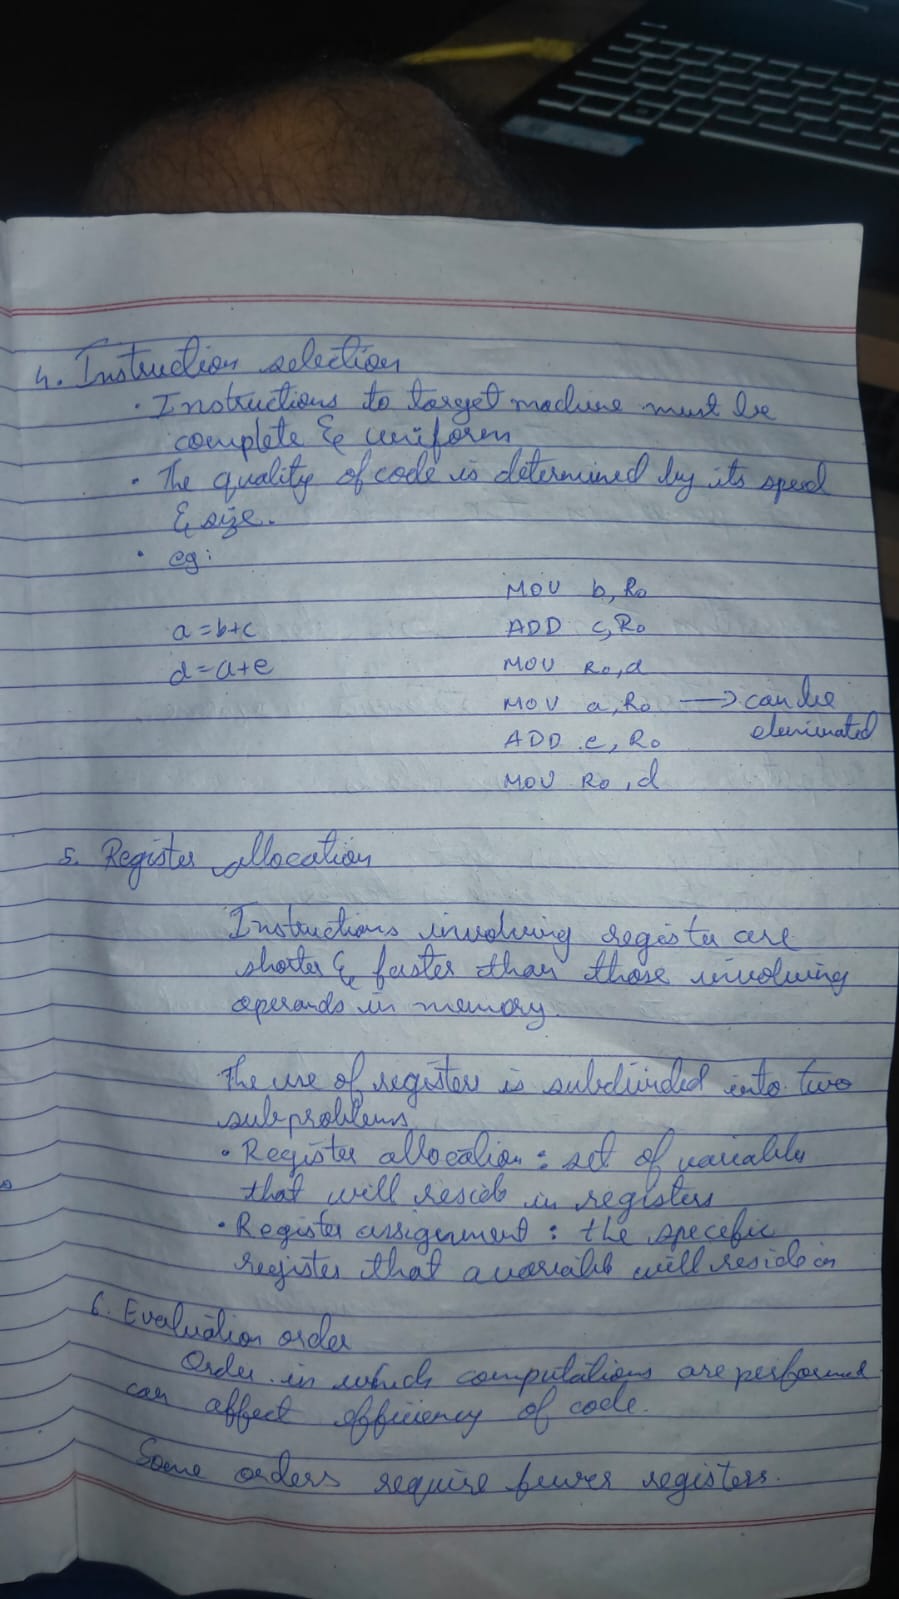 4. Instruction selection
· Instructions to target machine must be
complete & uniform
· The quality of code is determined by its speed
& size.
· eg:
MOV b, R0
a = b+c ADD c, R0
d = a+e MOV R0, d
MOV a, R0 → can be
eliminated
ADD e, R0
MOV R0, d
5. Register allocation
Instructions involving register are
shorter & faster than those involving
operands in memory.
The use of registers is subdivided into two
subproblems
· Register allocation : set of variables
that will reside in registers
· Register assignment : the specific
register that a variable will reside in
6. Evaluation order
Order in which computations are performed
can affect efficiency of code.
Some orders require fewer registers.